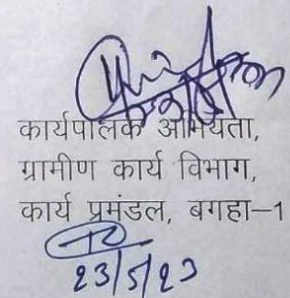 कार्यपालक अभियंता,
ग्रामीण कार्य विभाग,
कार्य प्रमंडल, बगहा–1
23/5/23